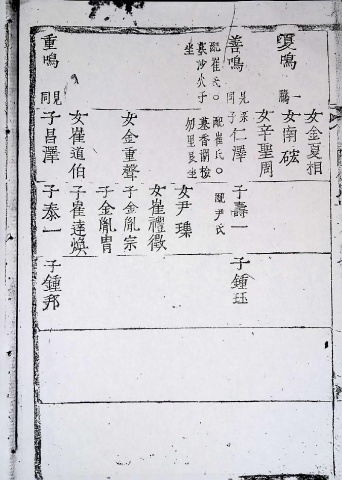 女金夏相
夏鳴 一騰
女南硡
女辛聖周
善鳴
子仁澤
子壽一
子鍾珏
配崔氏○
墓香澗檢
勿里艮坐
配尹氏
配崔氏○
墓沙火子
坐
女尹瑧
女崔禮徵
女金重聲
子金胤宗
子金胤胄
女崔道伯
子崔達煥
重鳴 見同
子昌澤
子泰一
子鍾邦